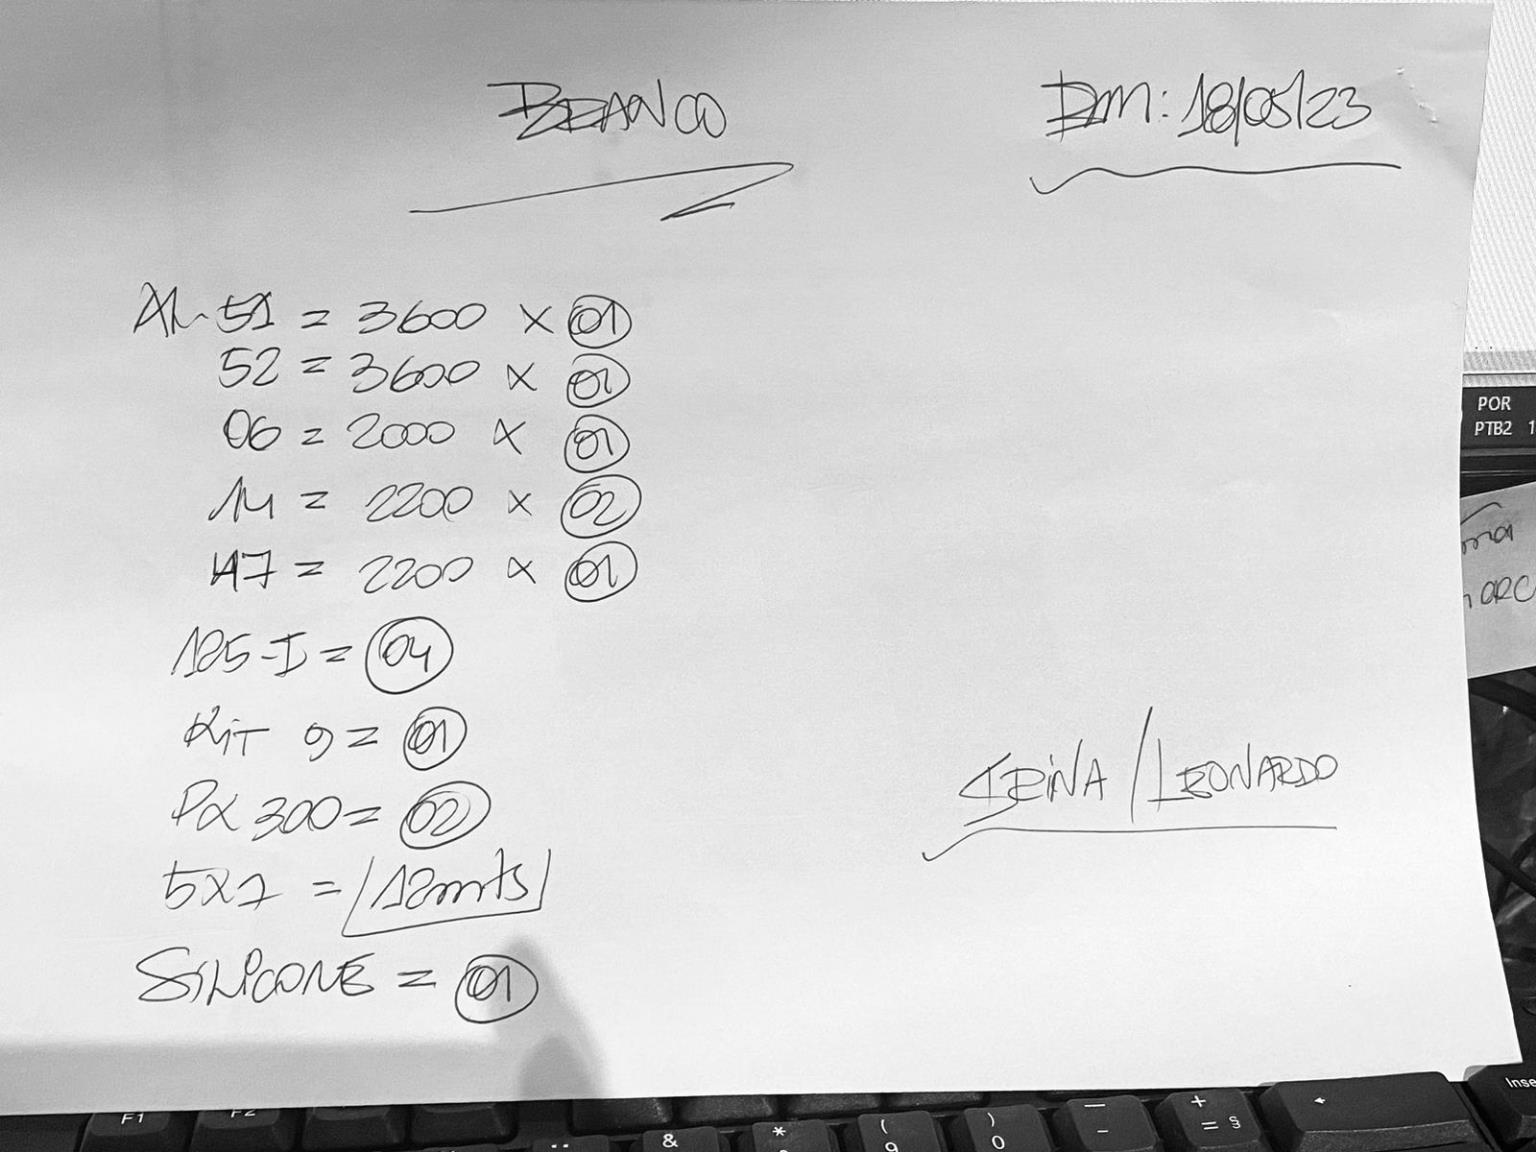 BRANCO
EM: 18/05/23
AL- 51 = 3600 X 01
52 = 3600 X 01
06 = 2000 X 01
14 = 2200 X 02
47 = 2200 X 01
125-I = 04
KIT 9 = 01
PX 300 = 02
5X7 = 12mts
SILICONE = 01
IRINA / LEONARDO
POR
PTB2 1
ORC
F1 F2
& * ( ) — +
9 0 - = §
Inse